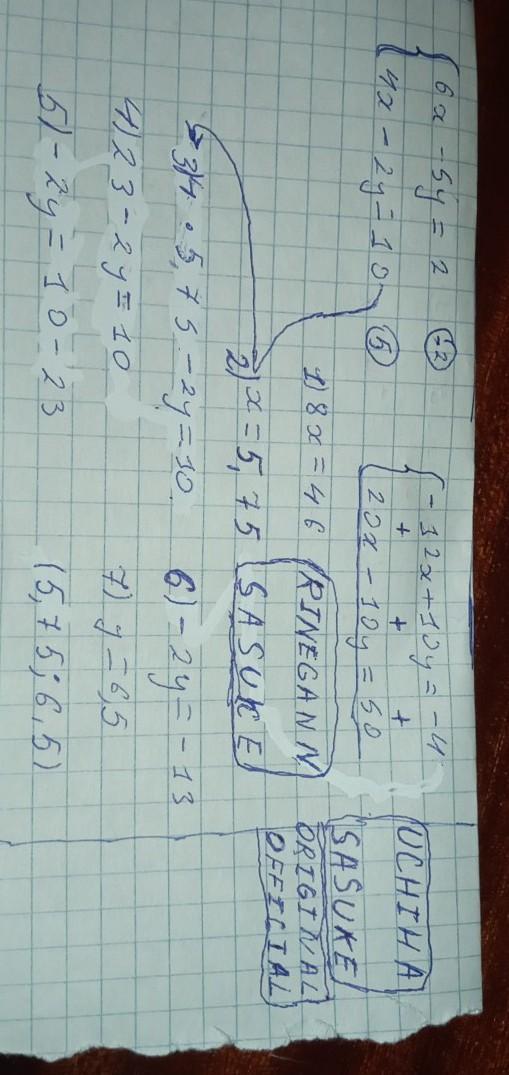 6x - 5y = 2 (-2)
4x - 2y = 10 (5)
-12x + 10y = -4
+ + +
20x - 10y = 50
1) 8x = 46
2) x = 5,75
3) 4 · 5,75 - 2y = 10
4) 23 - 2y = 10
5) -2y = 10 - 23
6) -2y = -13
7) y = 6,5
(5,75; 6,5)
RINEGANN
SASUKE
UCHIHA
SASUKE
ORIGINAL
OFFICIAL